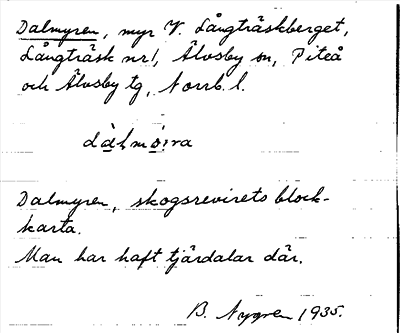 Dalmyren, myr V. Långträskberget,
Långträsk nr 1, Älvsby sn, Piteå
och Älvsby tg, Norrb. l.
dàlmø:ra
Dalmyren, skogsrevirets block-
karta.
Man har haft tjärdalar där.
B. Nygren 1935.